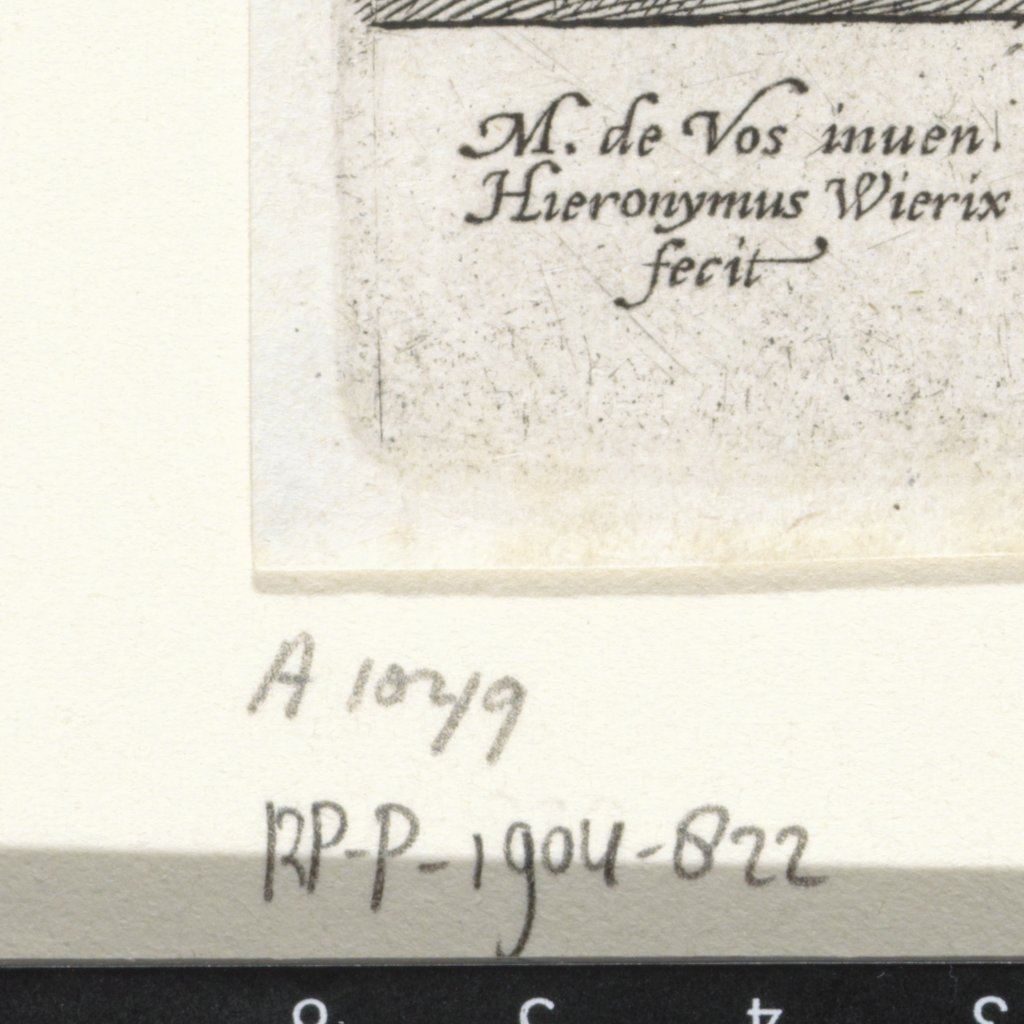 M. de Vos inuen.
Hieronymus Wierix
fecit
RP-P-1904-822